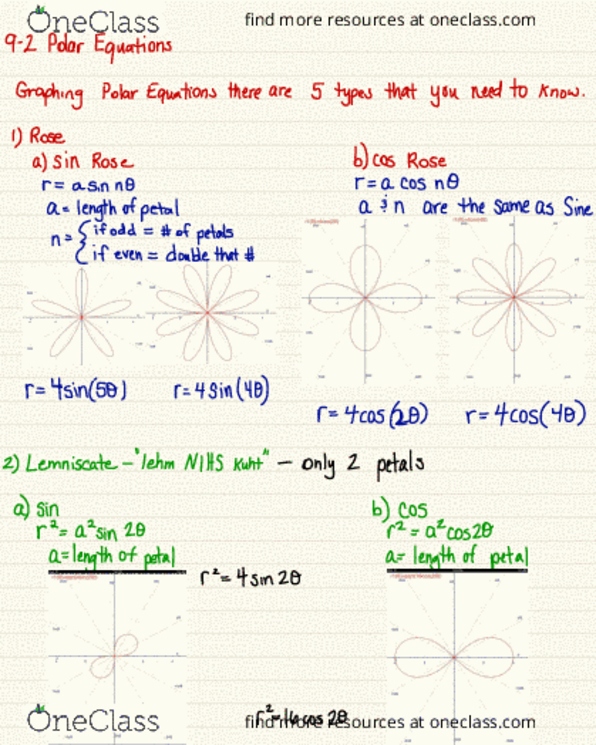 OneClass
find more resources at oneclass.com
9-2 Polar Equations
Graphing Polar Equations there are 5 types that you need to know.
1) Rose
a) sin Rose
r = a sin nθ
a = length of petal
n = { if odd = # of petals
if even = double that #
r = 4sin(5θ)
r = 4sin(4θ)
b) cos Rose
r = a cos nθ
a & n are the same as Sine
r = 4cos(2θ)
r = 4cos(4θ)
2) Lemniscate - "lehm NIHS kuht" - only 2 petals
a) sin
r² = a² sin 2θ
a = length of petal
r² = 4 sin 2θ
b) cos
r² = a² cos 2θ
a = length of petal
r² = 16 cos 2θ
OneClass
find more resources at oneclass.com